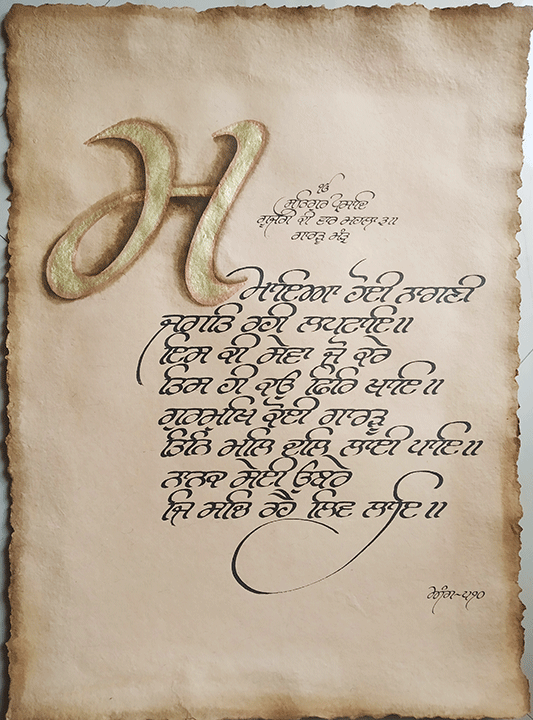 ਮ
ੴ
ਸਤਿਗੁਰ ਪ੍ਰਸਾਦਿ
ਗੂਜਰੀ ਕੀ ਵਾਰ ਮਹਲਾ ੩॥
ਗਾਰੜੂ ਮੰਤ੍ਰ
ਮਾਇਆ ਹੋਈ ਨਾਗਣੀ
ਜਗਤਿ ਰਹੀ ਲਪਟਾਇ॥
ਇਸ ਕੀ ਸੇਵਾ ਜੋ ਕਰੇ
ਤਿਸ ਹੀ ਕਉ ਫਿਰਿ ਖਾਇ॥
ਗੁਰਮੁਖਿ ਕੋਈ ਗਾਰੜੂ
ਤਿਨਿ ਮਲਿ ਦਲਿ ਲਾਈ ਪਾਇ॥
ਨਾਨਕ ਸੇਈ ਉਬਰੇ
ਜਿ ਸਚਿ ਰਹੈਂ ਲਿਵ ਲਾਇ॥